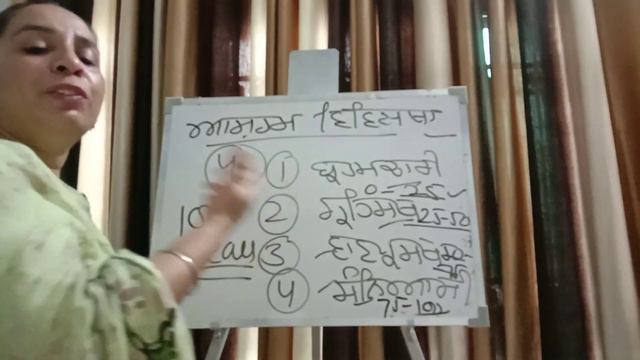 ਆਸ਼ਰਮ ਵਿਵਸਥਾ
੪ ① ਬ੍ਰਹਮਚਾਰੀ
0-25
② ਗ੍ਰਹਿਸਥ 25-50
③ ਵਾਣਪ੍ਰਸਥ 50-75
੪ ਸੰਨਿਆਸੀ
75-100